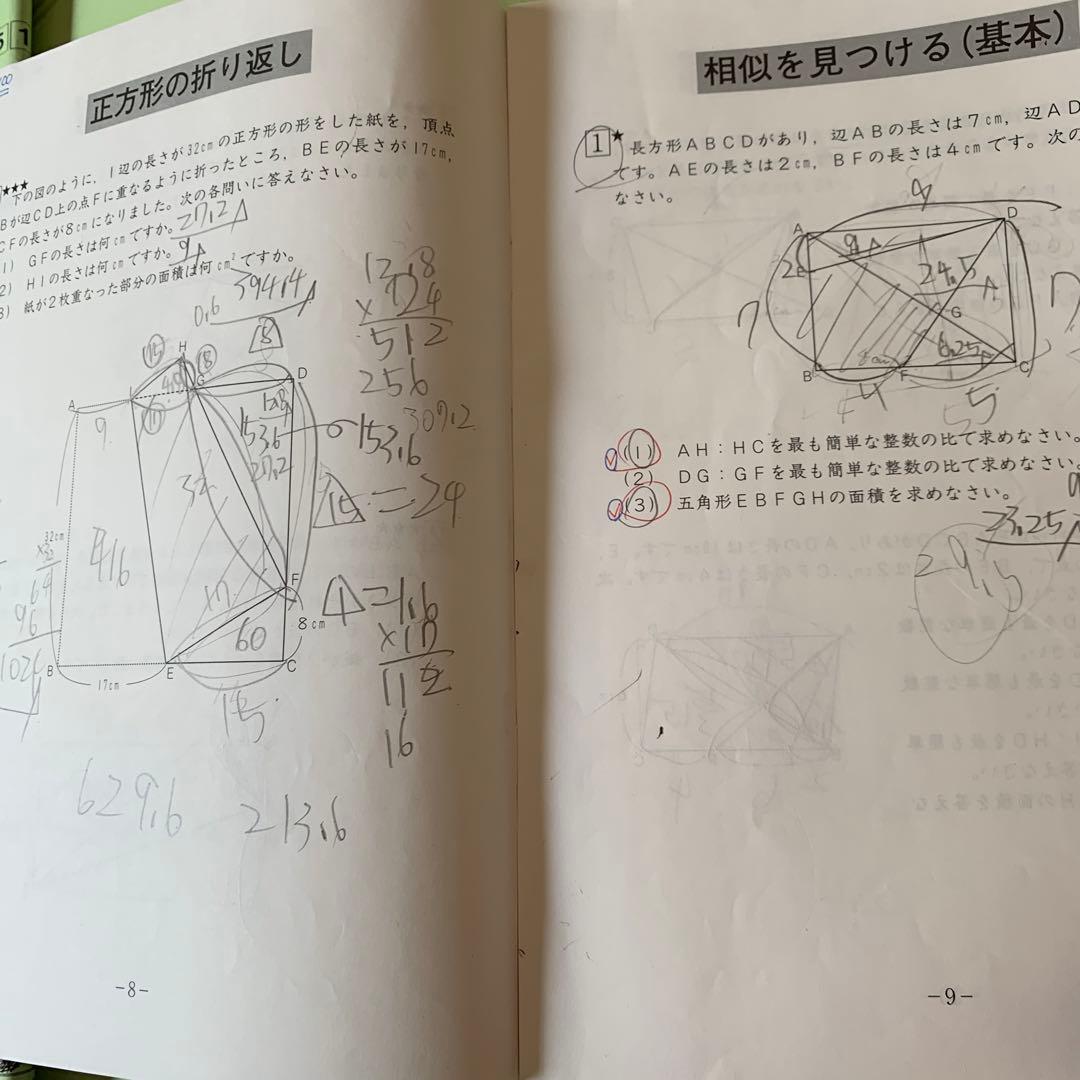 正方形の折り返し
★★★ 下の図のように，1辺の長さが32cmの正方形の形をした紙を，頂点
Bが辺CD上の点Fに重なるように折ったところ，BEの長さが17cm，
CFの長さが8cmになりました。次の各問いに答えなさい。
1) GFの長さは何cmですか。27.2
2) HIの長さは何cmですか。9
3) 紙が2枚重なった部分の面積は何cm²ですか。
394.4
0.6
8
12.8
×24
512
256
307.2
153.6
15=24
1=1.6
×17
112
16
H
15
G
D
A
I
9
17
12.8
153.6
27.2
32
416
17
F
8cm
60
B
17cm
E
C
15
32cm
×32
64
96
1024
629.6
213.6
-8-
相似を見つける(基本)
1 ★ 長方形ABCDがあり，辺ABの長さは7cm，辺AD
です。AEの長さは2cm，BFの長さは4cmです。次の
なさい。
9
A
D
2
E
24.5
7
G
6.25
B
F
C
4
5
(1) AH：HCを最も簡単な整数の比で求めなさい。
(2) DG：GFを最も簡単な整数の比で求めなさい。
(3) 五角形EBFGHの面積を求めなさい。
23.25
29.5
-9-